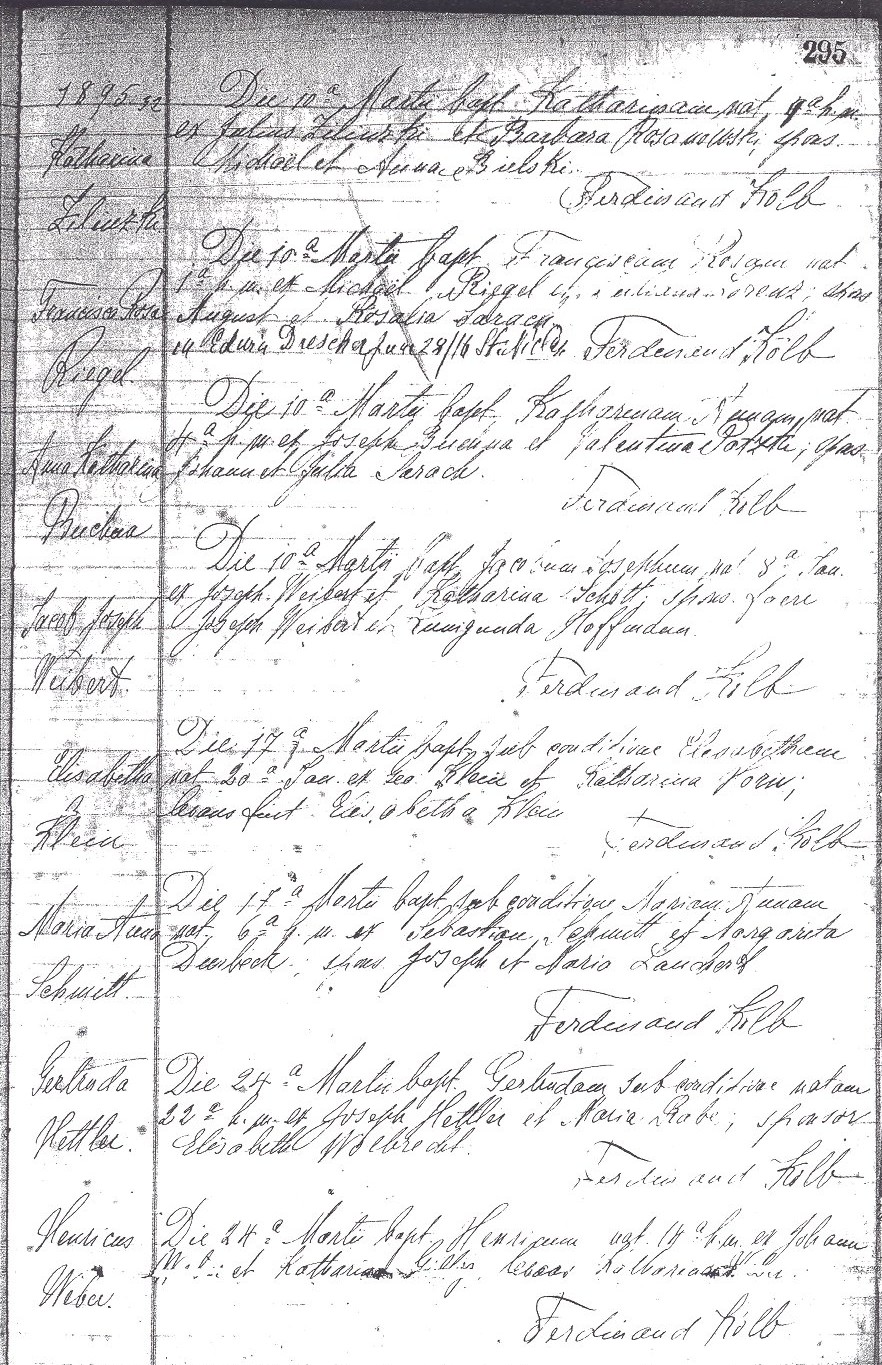 295
1895
Katharina
Zilinzki
Die 10ª Martii bapt. Katharinam nat. 9ª h.m.
ex Julius Zilinzki et Barbara Rosanowski, spons.
Michael et Anna Bielski.
Ferdinand Kolb
Francisca Rosa
Riegel.
Die 10ª Martii bapt. Franciscam Rosam nat
1ª h.m. ex Michael Riegel Lorenz; spons
August et Rosalia Sarach
m Edwin Drescher June 28/16 St Mich
Ferdinand Kolb
Anna Katharina
Buchna
Die 10ª Martii bapt. Katharinam Annam, nat
4ª h.m. ex Joseph et Valentina; spons
Johann et Julia Sarach.
Ferdinand Kolb
Jacob Joseph
Weibert.
Die 10ª Martii bapt. Jacobum Josephum nat 8ª Jan.
ex Joseph Weibert et Katharina Schott; spons. fuere
Joseph Weibert et Kunigunda Hoffmann.
Ferdinand Kolb
Elisabetha
Klein
Die 17ª Martii bapt. sub conditione Elisabetham
nat 20ª Jan. ex Geo. Klein et Katharina Horn;
levans fuit Elisabetha Klein
Ferdinand Kolb
Maria Anna
Schmitt
Die 17ª Martii bapt. sub conditione Mariam Annam
nat. 6ª h.m. ex Sebastian Schmitt et Margarita
Dierbeck; spons. Joseph et Maria
Ferdinand Kolb
Gertruda
Hettler.
Die 24ª Martii bapt. Gertrudam sub conditione natam
22ª h.m. ex Joseph Hettler et Maria Rabe; sponsor
Elisabeth Wolbrecht.
Ferdinand Kolb
Henricus
Weber.
Die 24ª Martii bapt. Henricum nat. 14ª h.m. ex Johann
et Katharina levans Katharina
Ferdinand Kolb